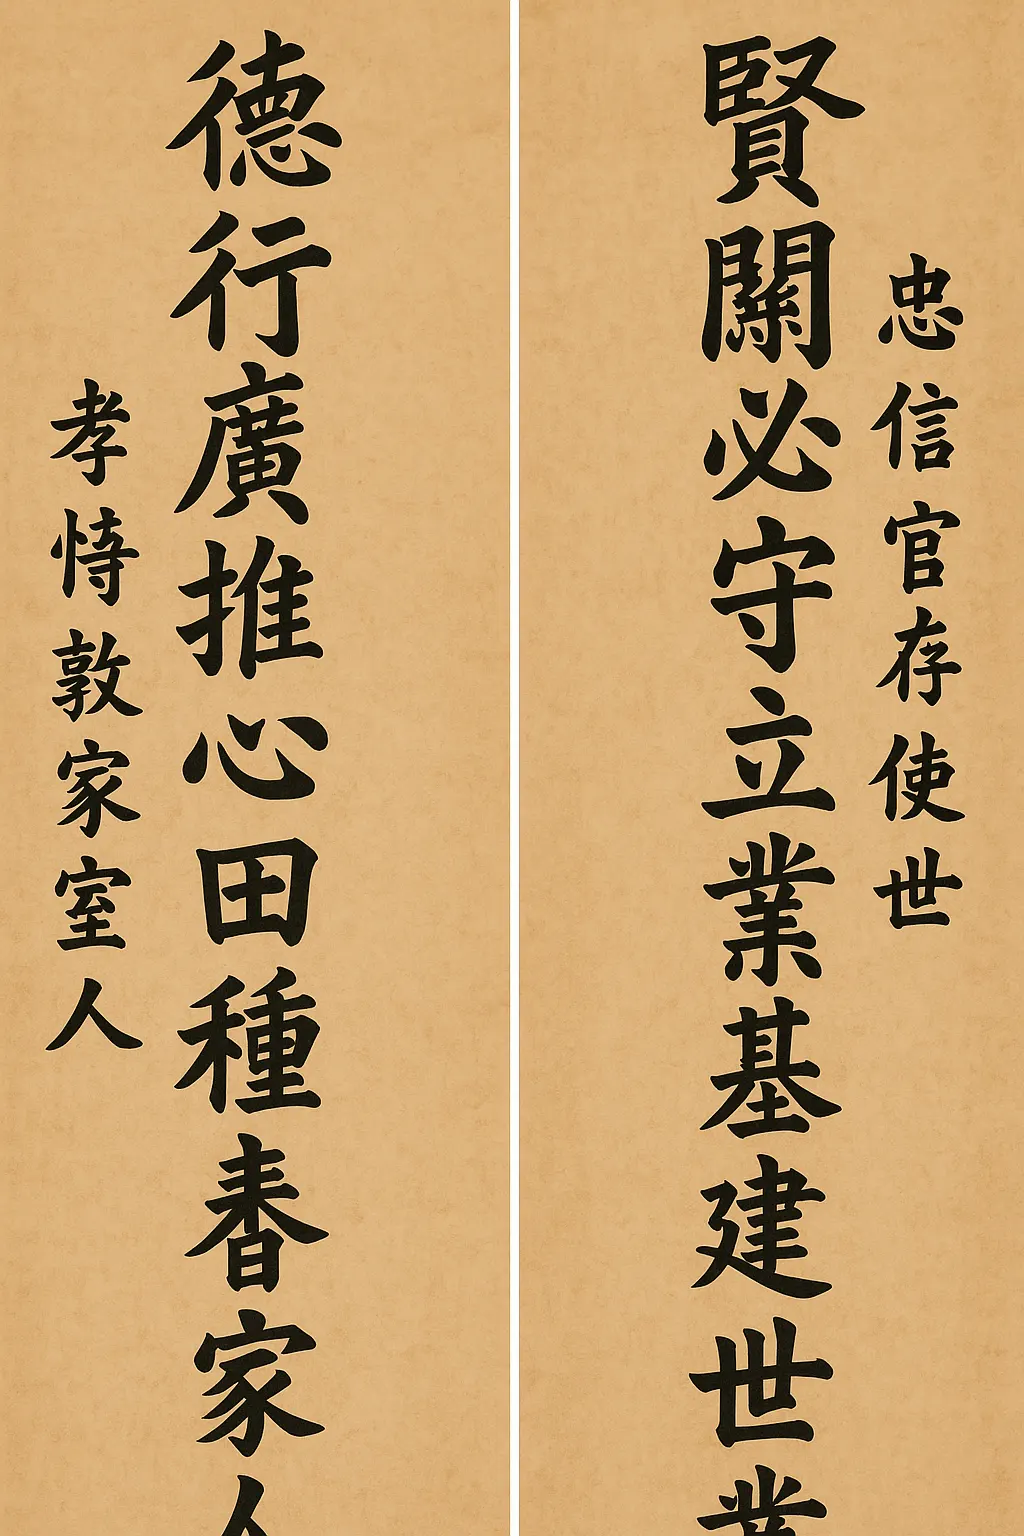 忠信官存使世
賢關必守立業基建世業
德行廣推心田種春家人
孝恃敦家室人